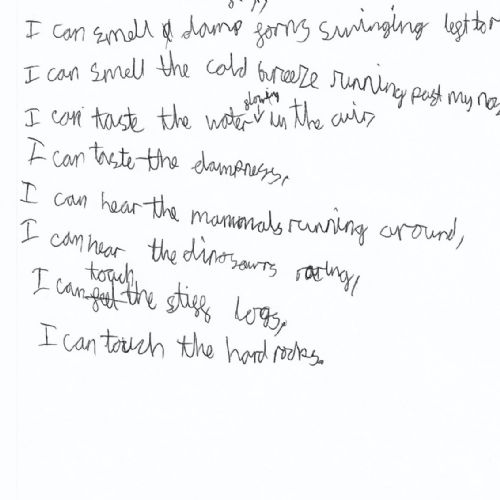 I can smell damp forns swinging left to r
I can smell the cold breeze running past my nos
I can taste the water glowing in the air,
I can taste the dampness,
I can hear the mammals running around,
I can hear the dinosaurs racing,
I can touch the stiff logs,
I can touch the hard rocks.